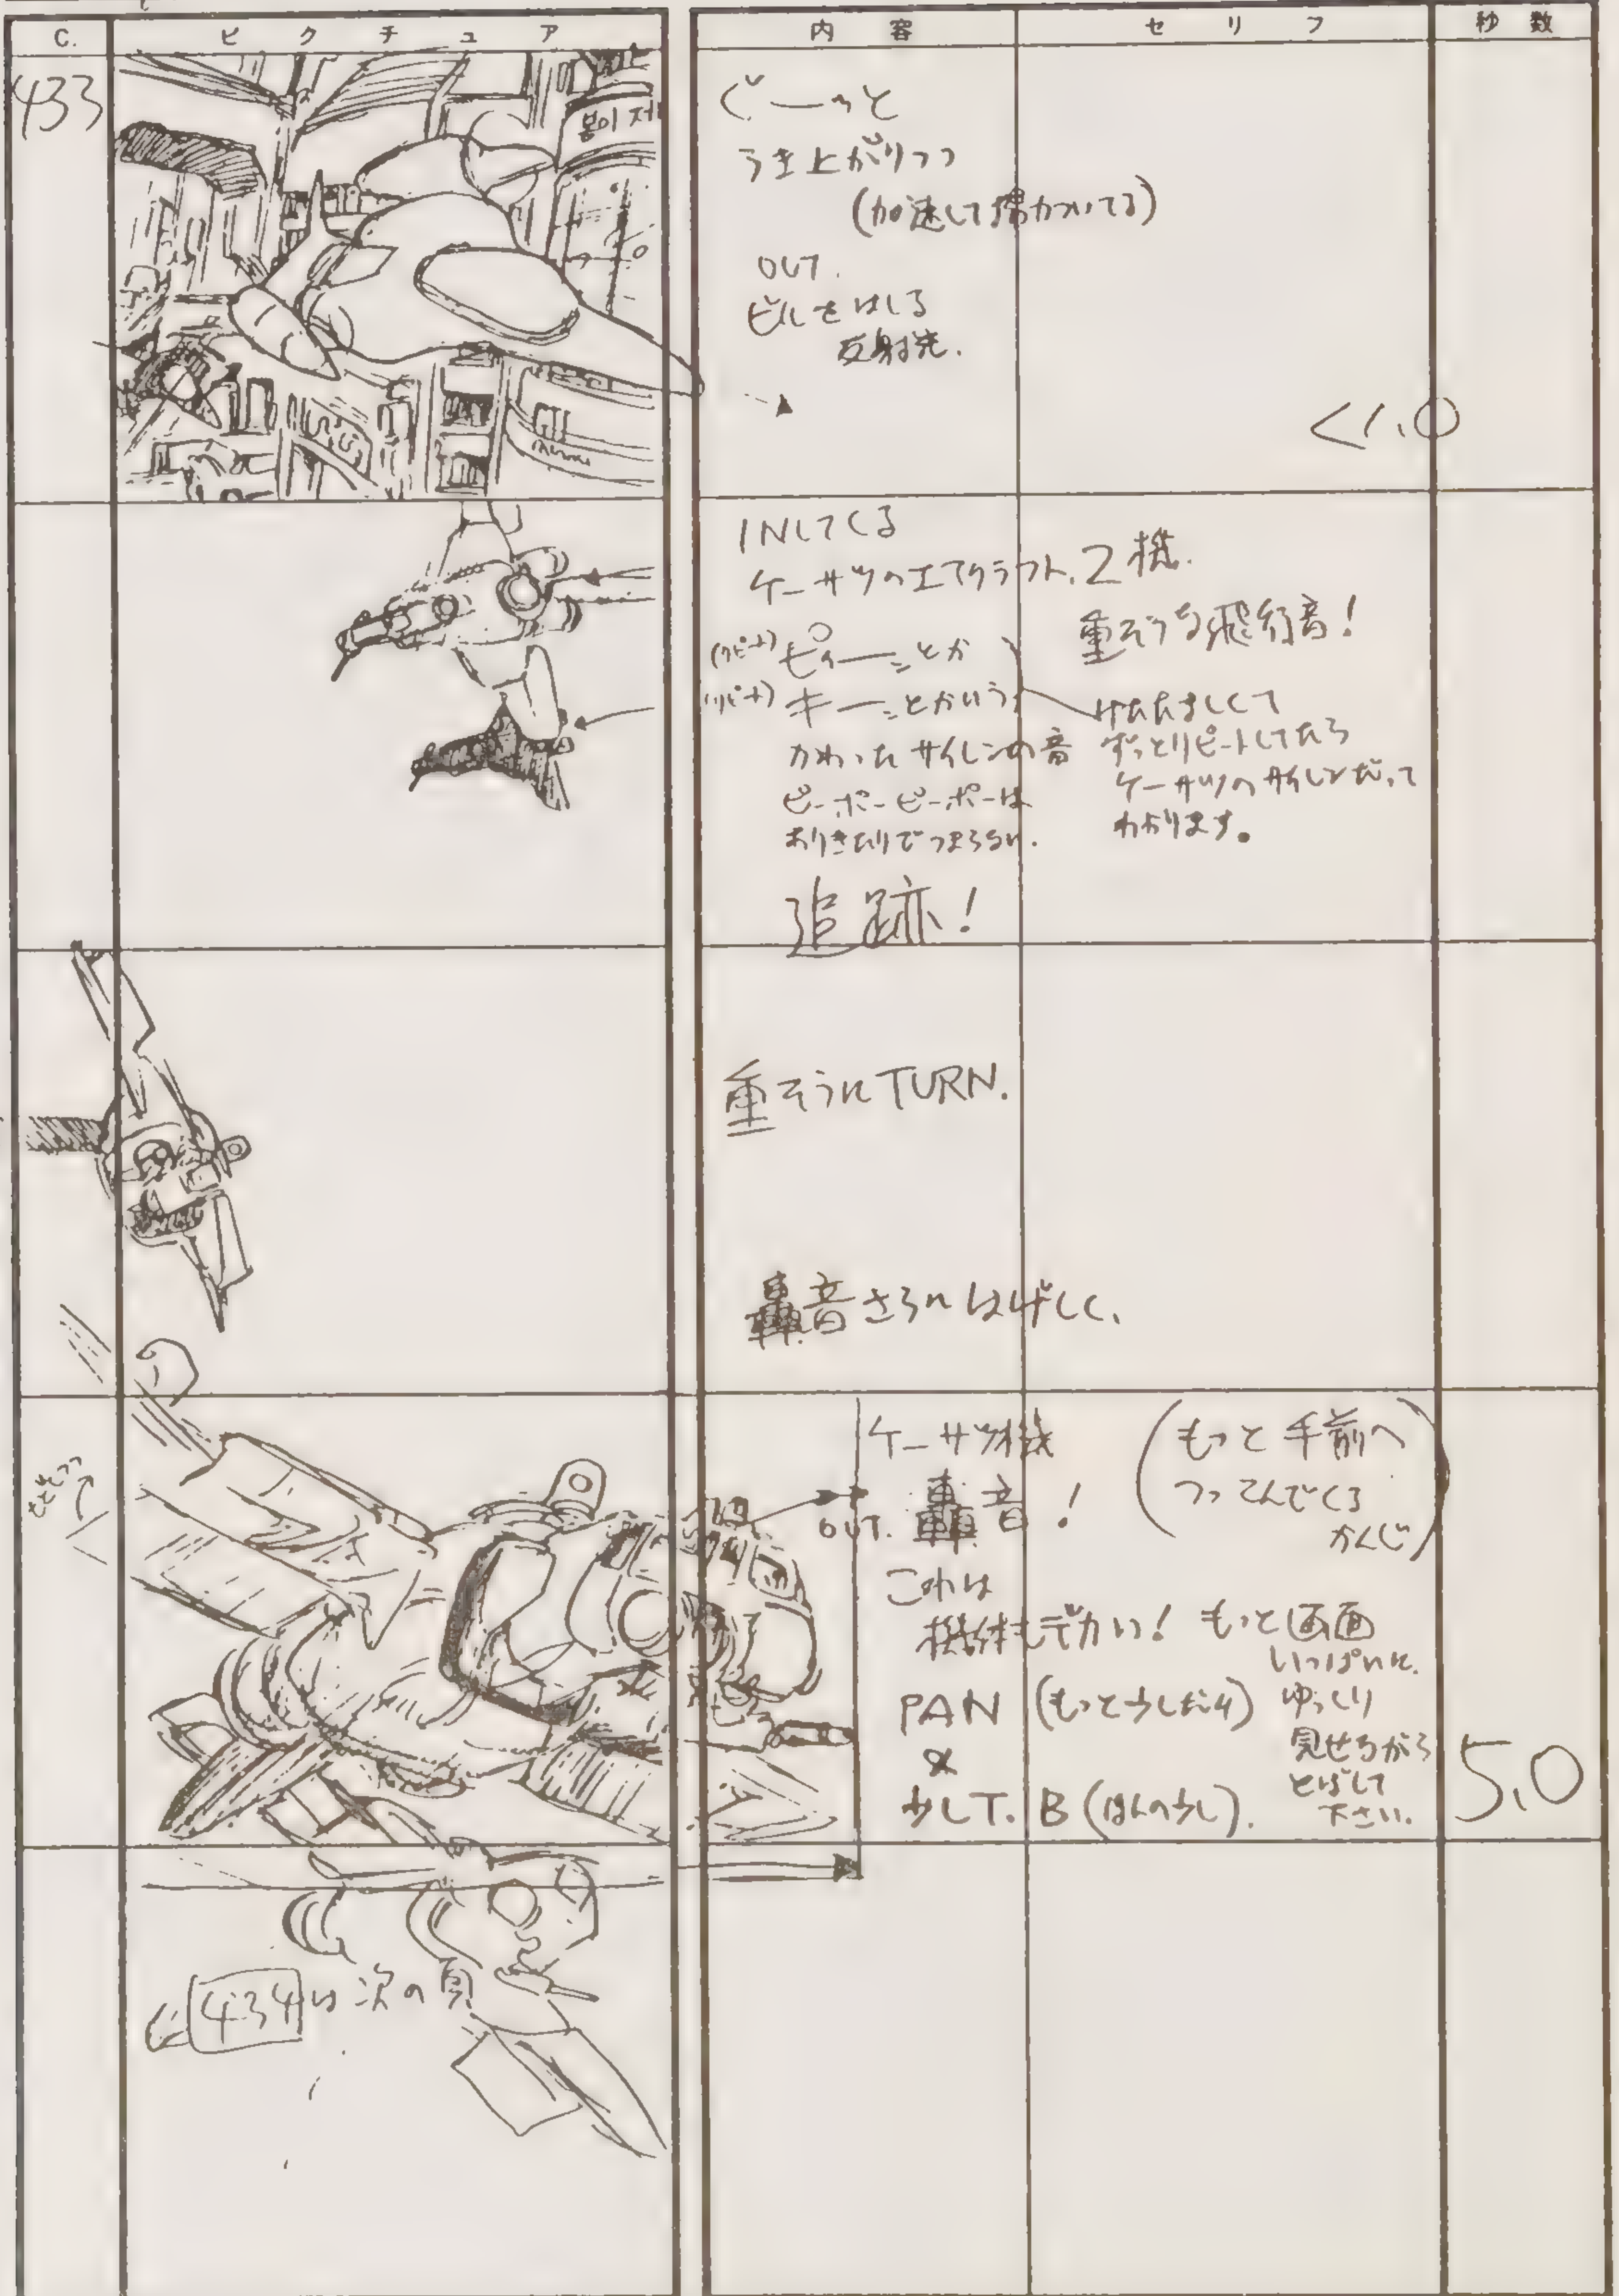 C.
ピクチュア
内容
セリフ
秒数
433
봉이
ぐーっと
うき上がりつつ
(加速して揚力ついてる)
OUT.
ビルをはしる
反射光.
<1.0
INしてくる
ケーサツのエアクラフト. 2機.
重そうな飛行音!
(リピート) ピィーーとか
(リピート) キーーとかいう
かわったサイレンの音
ピーポーピーポーは
ありきたりでつまらない.
けたたましくて
ずっとリピートしてたら
ケーサツのサイレンだって
わかります。
追跡!
重そうにTURN.
轟音さらにはげしく、
ケーサツ機
OUT. 轟音!
(もっと手前へ
つっこんでくる
かんじ)
これは
機体もデカい! もっと画面
いっぱいに.
PAN (もっと少しだけ)
&
少しT.B (ほんの少し).
ゆっくり
見せながら
とばして
下さい.
5.0
434は次の頁